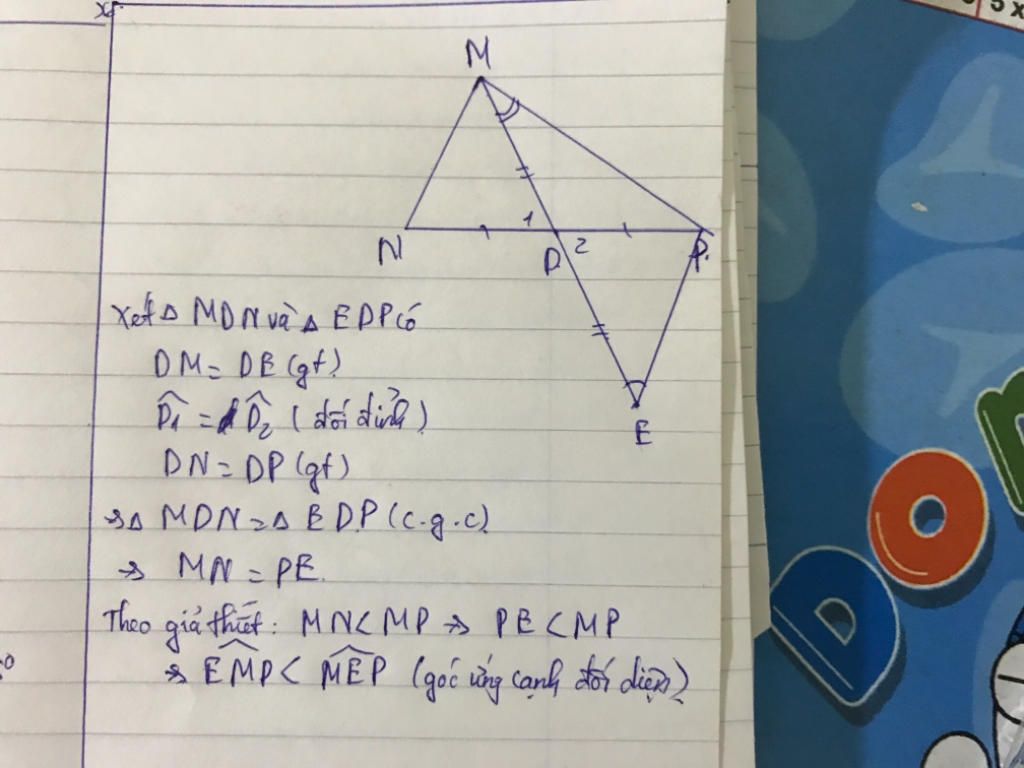 M
N
1
D
2
P
E
Xét △ MDN và △ EDP có
DM = DE (gt)
D̂1 = D̂2 (đối đỉnh)
DN = DP (gt)
→ △ MDN = △ EDP (c.g.c)
→ MN = PE.
Theo giả thiết: MN < MP → PE < MP
→ EMP < MEP (góc ứng cạnh đối diện)
5 x
DO